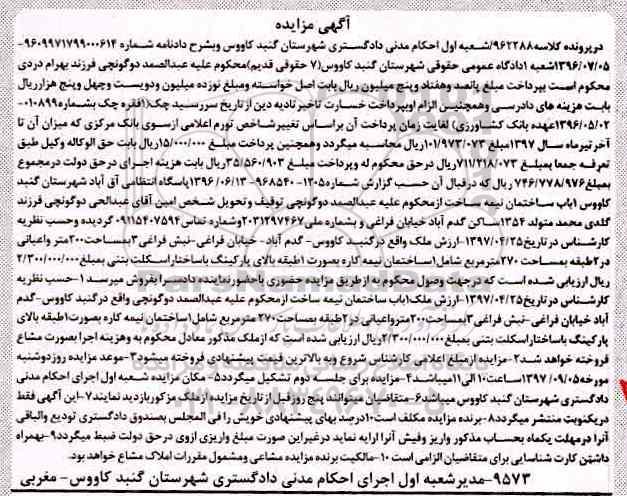 آگهی مزایده
درپرونده کلاسه۹۶۲۲۸۸/شعبه اول احکام مدنی دادگستری شهرستان گنبد کاووس وبشرح دادنامه شماره ۹۶۰۹۹۷۱۷۹۹۰۰۰۶۱۴-
۱۳۹۶/۰۷/۰۵شعبه ۱دادگاه عمومی حقوقی شهرستان گنبد کاووس(۷ حقوقی قدیم)محکوم علیه عبدالصمد دوگونچی فرزند بهرام دردی
محکوم است بپرداخت مبلغ پانصد وهفتاد وپنج میلیون ریال بابت اصل خواسته ومبلغ نوزده میلیون ودویست وچهل وپنج هزارریال
بابت هزینه های دادرسی وهمچنین الزام اوبپرداخت خسارت تاخیر تادیه دین از تاریخ سررسید چک(۱فقره چک بشماره۰۱۰۸۹۹-
۱۳۹۶/۰۵/۰۲عهده بانک کشاورزی) لغایت زمان پرداخت آن براساس تغییرشاخص تورم اعلامی ازسوی بانک مرکزی که میزان آن تا
آخر تیرماه سال ۱۳۹۷مبلغ ۱۰۱/۹۷۳/۰۷۳ریال محاسبه میگردد وهمچنین پرداخت مبلغ ۱۵/۰۰۰/۰۰۰ریال بابت حق الوکاله وکیل طبق
تعرفه جمعا بمبلغ ۷۱۱/۲۱۸/۰۷۳ریال درحق محکوم له وپرداخت مبلغ ۳۵/۵۶۰/۹۰۳ریال بابت هزینه اجرای درحق دولت درمجموع
بمبلغ۷۴۶/۷۷۸/۹۷۶ ریال که درقبال آن حسب گزارش شماره۱۲۰۵-۹۶۸۵۴۰-۱۳۹۶/۰۶/۱۳پاسگاه انتظامی آق آباد شهرستان گنبد
کاووس ۱باب ساختمان نیمه ساخت ازمحکوم علیه عبدالصمد دوگونچی توقیف وتحویل شخص امین آقای عبدالحی دوگونچی فرزند
گلدی محمد متولد ۱۳۵۴ساکن گدم آباد خیابان فراغی و بشماره ملی۲۰۳۱۲۹۷۴۶۷وشماره تماس۰۹۱۱۵۴۰۷۵۹۴ گردیده وحسب نظریه
کارشناس درتاریخ۱۳۹۷/۰۴/۲۵-ارزش ملک واقع درگنبد کاووس- گدم آباد- خیابان فراغی-نبش فراغی۳بمساحت۲۰۰متر واعیانی
در۲طبقه بمساحت ۲۷۰مترمربع شامل ۱ساختمان نیمه کاره بصورت ۱طبقه بالای پارکینگ باساختاراسکلت بتنی بمبلغ۲/۳۰۰/۰۰۰/۰۰۰
ریال ارزیابی شده است که درجهت وصول محکوم به ازطریق مزایده حضوری باحضورنماینده دادسرا بفروش میرسد ۱-حسب نظریه
کارشناس درتاریخ۱۳۹۷/۰۴/۲۵-ارزش ملک۱باب ساختمان نیمه ساخت ازمحکوم علیه عبدالصمد دوگونچی واقع درگنبد کاووس-گدم
آباد خیابان فراغی-نبش فراغی۳بمساحت۲۰۰مترواعیانی در۲طبقه بمساحت۲۷۰ مترمربع شامل۱ساختمان نیمه کاره بصورت۱طبقه بالای
پارکینگ باساختاراسکلت بتنی بمبلغ۲/۳۰۰/۰۰۰/۰۰۰ریال ارزیابی شده است که ازملک مذکور معادل محکوم به وهزینه اجرا بصورت مشاع
فروخته خواهد شد۲-مزایده ازمبلغ اعلامی کارشناس شروع وبه بالاترین قیمت پیشنهادی فروخته میشود۳-موعد مزایده روزدوشنبه
مورخه۱۳۹۷/۰۹/۰۵ساعت۱۰الی۱۱میباشد۴-مزایده برای جلسه دوم تشکیل میگردد۵- مکان مزایده شعبه اول اجرای احکام مدنی
دادگستری شهرستان گنبد کاووس میباشد۶-متقاضیان میتوانند پنج روزقبل ازتاریخ مزایده ازملک مزبوربازدید نمایند۷-این آگهی فقط
دریکنوبت منتشر میگردد۸-برنده مزایده مکلف است۱۰درصد بهای پیشنهادی خویش را فی المجلس بصندوق دادگستری تودیع والباقی
آنرا درمهلت یکماه بحساب مذکور واریز وفیش آنرا ارایه نماید درغیراین صورت مبلغ واریزی ازوی درحق دولت ضبط میگردد۹-بهمراه
داشتن کارت شناسایی برای متقاضیان الزامی است ۱۰-مالکیت برنده مزایده مشاعی ومشمول مقررات املاک مشاع خواهد بود.
۹۵۷۳-مدیرشعبه اول اجرای احکام مدنی دادگستری شهرستان گنبد کاووس- مغربی